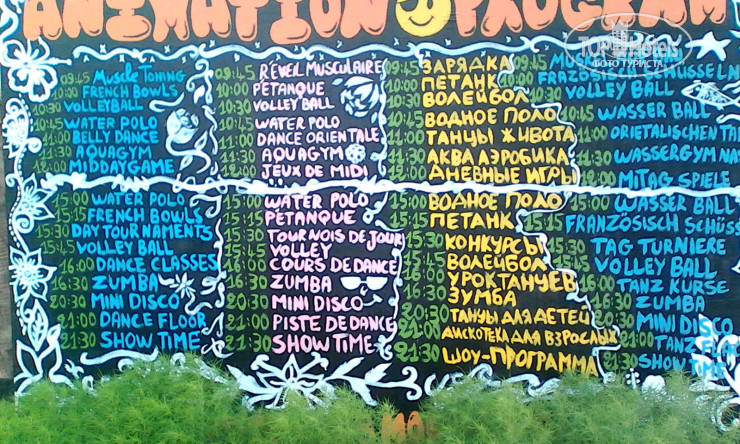 ANIMATION PROGRAM
TopHotels
ФОТО ТУРИСТА
09:45 MUSCLE TONING
10:00 FRENCH BOWLS
10:30 VOLLEYBALL
10:45 WATER POLO
11:00 BELLY DANCE
11:30 AQUAGYM
12:00 MIDDAYGAME
15:00 WATER POLO
15:15 FRENCH BOWLS
15:30 DAY TOURNAMENTS
15:45 VOLLEY BALL
16:00 DANCE CLASSES
16:30 ZUMBA
20:30 MINI DISCO
21:00 DANCE FLOOR
21:30 SHOW TIME
09:45 RÉVEIL MUSCULAIRE
10:00 PÉTANQUE
10:30 VOLLEY BALL
10:45 WATER POLO
11:00 DANCE ORIENTALE
11:30 AQUAGYM
12:00 JEUX DE MIDI
15:00 WATER POLO
15:15 PÉTANQUE
15:30 TOURNOIS DE JOUR
15:45 VOLLEY
16:00 COURS DE DANCE
16:30 ZUMBA
20:30 MINI DISCO
21:00 PISTE DE DANCE
21:30 SHOW TIME
09:45 ЗАРЯДКА
10:00 ПЕТАНК
10:30 ВОЛЕЙБОЛ
10:45 ВОДНОЕ ПОЛО
11:00 ТАНЦЫ ЖИВОТА
11:30 АКВА АЭРОБИКА
12:00 ДНЕВНЫЕ ИГРЫ
15:00 ВОДНОЕ ПОЛО
15:15 ПЕТАНК
15:30 КОНКУРСЫ
15:45 ВОЛЕЙБОЛ
16:00 УРОКТАНУЕВ
16:30 ЗУМБА
20:30 ТАНУЫ ДЛЯ ДЕТЕЙ
21:00 ДИСКОТЕКА ДЛЯ ВЗРОСЛЫХ
21:30 ШОУ-ПРОГРАММА
09:45
10:00 FRANZÖSISCH SCHÜSSELN
10:30 VOLLEY BALL
WASSER BALL
11:00 ORIETALISCHEN
11:30 WASSERGYM
12:00 MITAG SPIELE
15:00 WASSER BALL
15:15 FRANZÖSISCH
15:30 TAG TURNIERE
VOLLEY BALL
16:00 TANZ KURSE
16:30 ZUMBA
20:30 MINI DISCO
21:00 TANZ
21:30 SHOW TIME